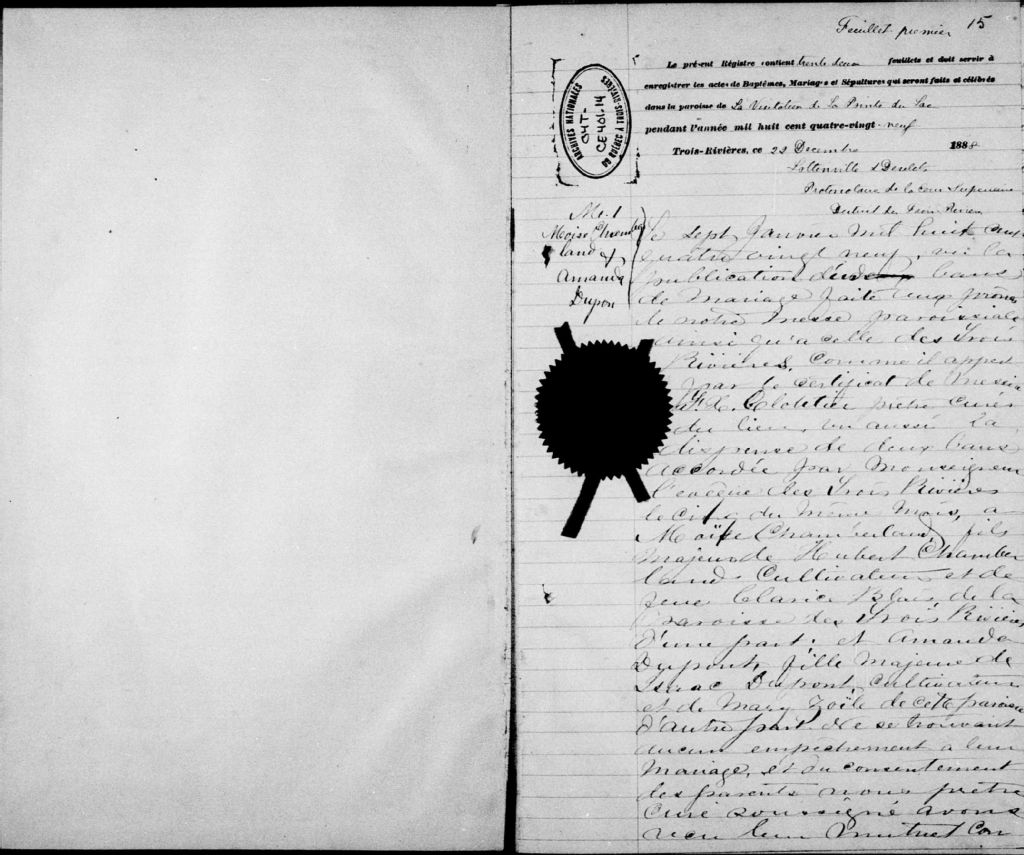 Feuillet premier 15
Le présent Régistre contient trente deux feuillets et doit servir à
enregistrer les actes de Baptêmes, Mariages et Sépultures qui seront faits et célébrés
dans la paroisse de La Visitation de La Pointe du Lac
pendant l'année mil huit cent quatre-vingt-neuf
Trois-Rivières, ce 22 Decembre 1888
Protonotaire de la Cour Superieure
District des Trois Rivières
ARCHIVES NATIONALES
04T-
CE401-14
DU QUÉBEC À TROIS-RIVIÈRES
M.1
Moise Chamber
land &
Amanda
Dupon
Le sept Janvier mil huit cent
quatre vingt neuf, vu la
publication d'un bans
de Mariage faite aux prônes
de notre Messe paroissiale
ainsi qu'a celle des Trois
Rivières, comme il appert
par le certificat de Messire
F. X. Cloutier prêtre curé
du lieu, vu aussi la
dispense de deux bans
accordée par Monseigneur
l'evêque des Trois Rivières
le cinq du même mois, a
Moïse Chamberland, fils
majeur de Hubert Chamber
land Cultivateur et de
feue Clarice Blais de la
paroisse des Trois Rivières
d'une part; et Amanda
Dupont, fille Majeure de
Isaac Dupont, cultivateur
et de Mary Zoïle de cette paroisse
d'autre part. Ne se trouvant
aucun empêchement a leur
Mariage, et du consentement
des parents nous prêtre
Curé soussigné avons
recu leur mutuel con